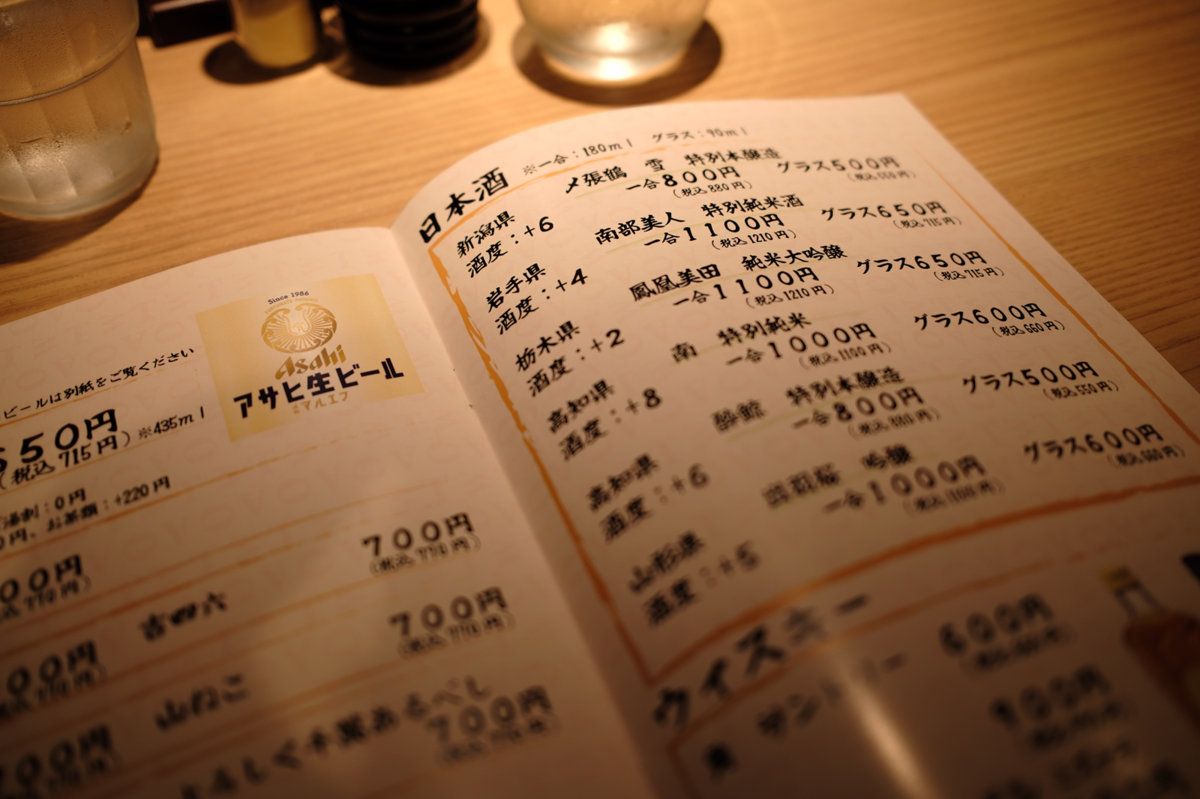 ビールは別紙をご覧ください
650円
(税込715円) ※435ml
Since 1986
Asahi
アサヒ生ビール
マルエフ
:0円
円、お茶類:+220円
00円
700円
(税込770円)
吉四六
00円
700円
(税込770円)
山ねこ
700円
700円
日本酒 ※一合:180ml グラス:90ml
新潟県 〆張鶴 雪 特別本醸造
酒度:+6 一合800円 グラス500円
(税込880円) (税込550円)
岩手県 南部美人 特別純米酒
酒度:+4 一合1100円 グラス650円
(税込1210円) (税込715円)
栃木県 鳳凰美田 純米大吟醸
酒度:+2 一合1100円 グラス650円
(税込1210円) (税込715円)
高知県 南 特別純米
酒度:+8 一合1000円 グラス600円
(税込1100円) (税込660円)
高知県 酔鯨 特別本醸造
酒度:+6 一合800円 グラス500円
(税込880円) (税込550円)
山形県 出羽桜 吟醸
酒度:+5 一合1000円 グラス600円
(税込1100円) (税込660円)
ウイスキー
サントリー
600円